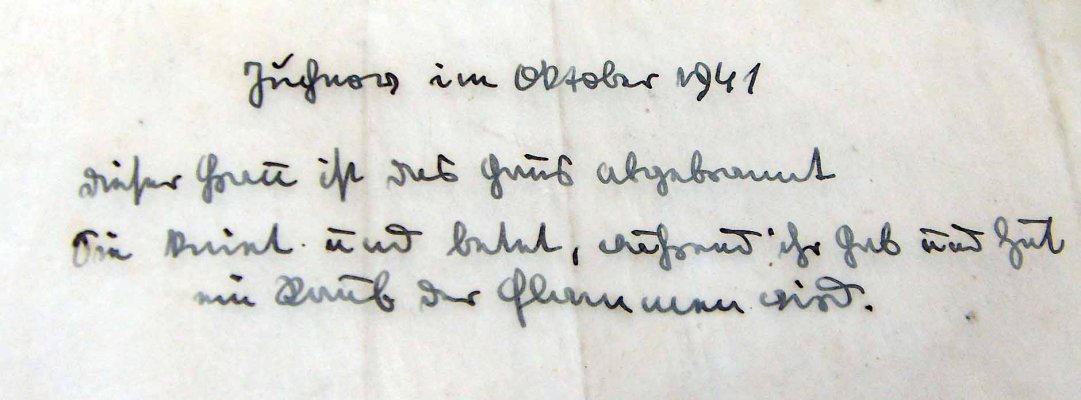 Juchnow im Oktober 1941
dieser Frau ist das Haus abgebrannt
Sie kniet und betet, während ihr Hab und Gut
ein Raub der Flammen wird.